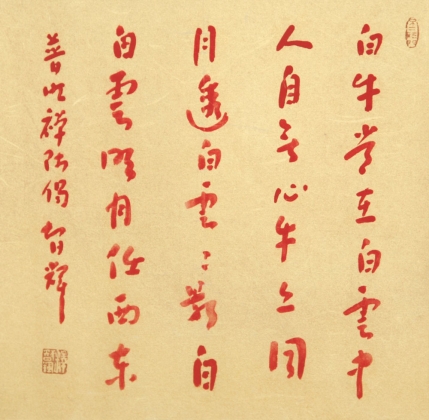 白牛常在白雲中
人自无心牛亦同
月透白雲雲影白
白雲明月任西东
普明禅師偈 智輝